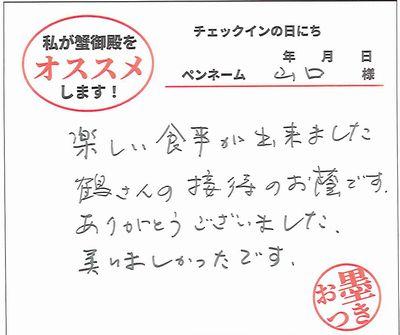 私が蟹御殿を
オススメ
します！
チェックインの日にち
年 月 日
ペンネーム 山口 様
楽しい食事が出来ました
鶴さんの接待のお蔭です.
ありがとうございました.
美いましかったです.
お墨つき